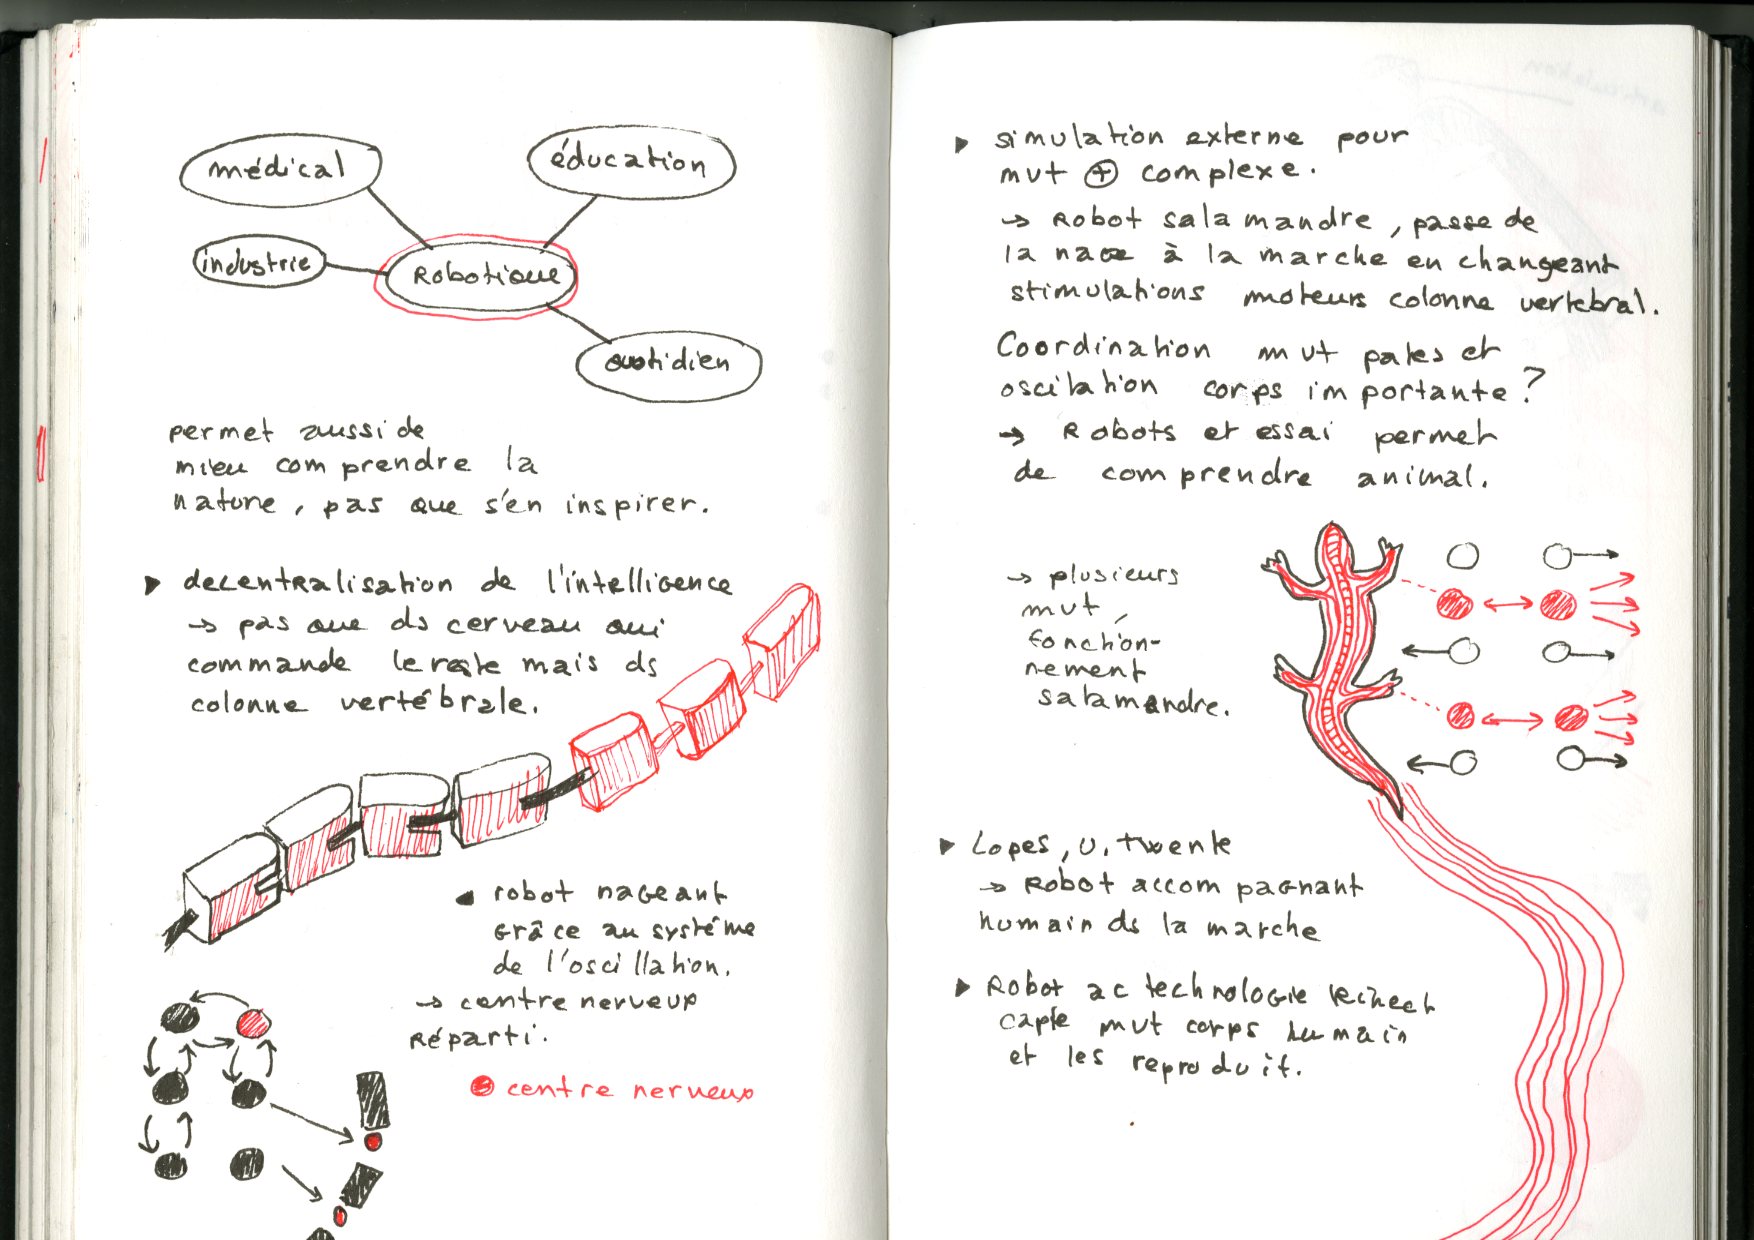 médical
éducation
industrie
Robotique
quotidien
permet aussi de
mieu comprendre la
nature, pas que s'en inspirer.
▶ decentralisation de l'intelligence
→ pas que ds cerveau qui
commande le reste mais ds
colonne vertébrale.
◀ robot nageant
grâce au système
de l'oscillation.
→ centre nerveux
Réparti.
centre nerveux
▶ simulation externe pour
mvt ⊕ complexe.
→ Robot salamandre, passe de
la nage à la marche en changeant
stimulations moteurs colonne vertebral.
Coordination mvt pates et
oscilation corps importante ?
→ Robots et essai permet
de comprendre animal.
→ plusieurs
mvt,
fonction-
nement
salamandre.
▶ Lopes, U. Twente
→ Robot accompagnant
humain ds la marche
▶ Robot ac technologie
capte mvt corps humain
et les reproduit.